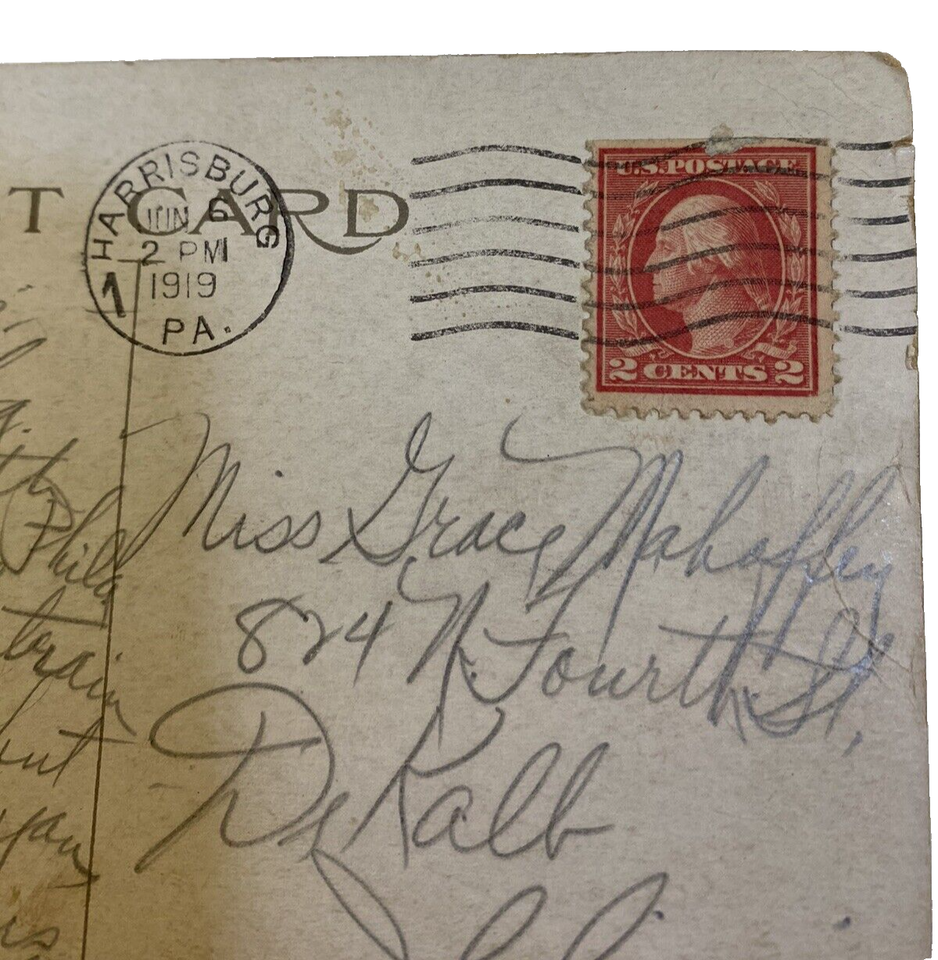 T CARD
HARRISBURG
JUN 6
2 PM
1919
1
PA.
U.S. POSTAGE
2 CENTS 2
Miss Grace Mahaffey
824 N. Fourth St,
De Kalb
Phila
train
but
is